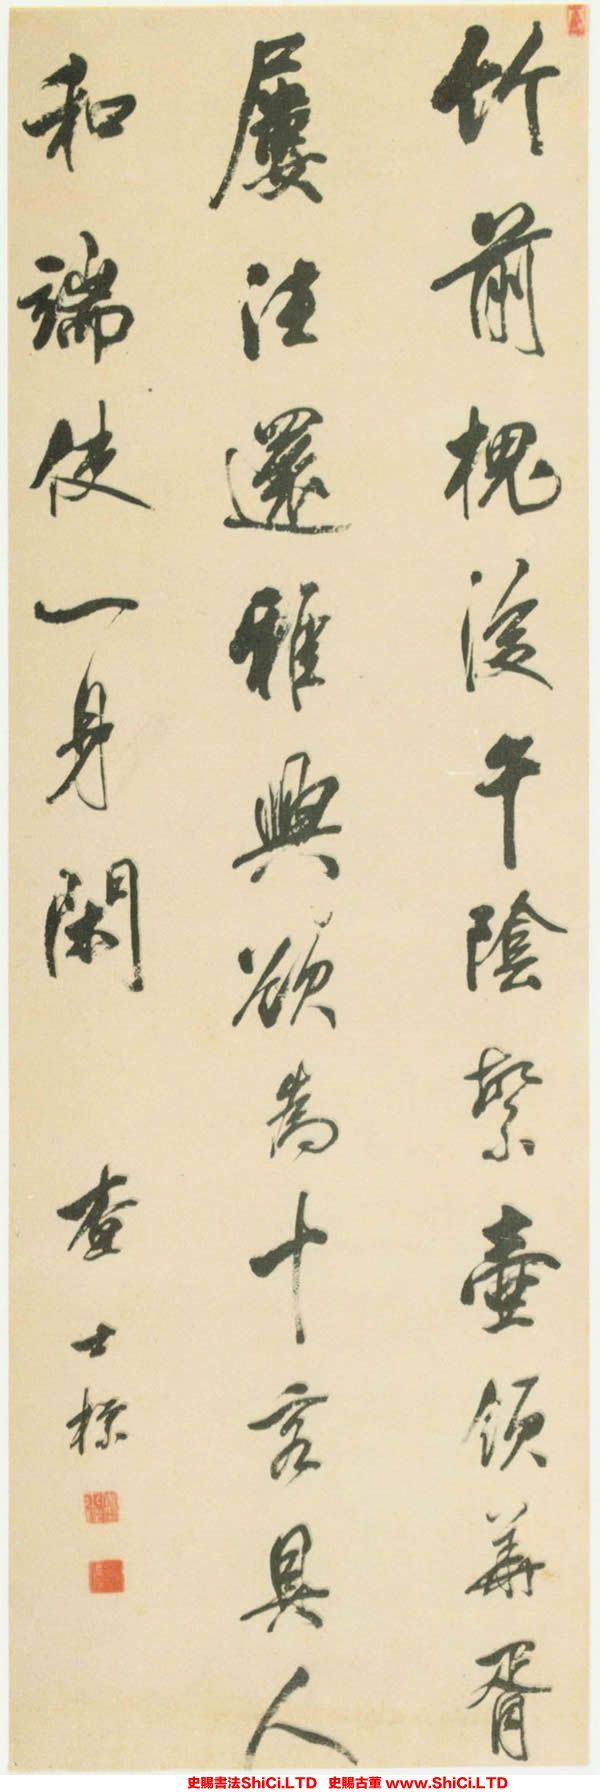 竹前槐後午陰繁壺領華胥
屢往還雅興欲為十客具人
和端使一身閑
查士標
史賜書法ShiCi.LTD 史賜古董 www.ShiCi.LTD